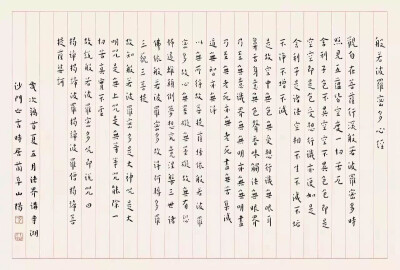 般若波羅蜜多心經
觀自在菩薩行深般若波羅蜜多時
照見五蘊皆空度一切苦厄
舍利子色不異空空不異色色即是
空空即是色受想行識亦復如是
舍利子是諸法空相不生不滅不垢
不淨不增不減
是故空中無色無受想行識無眼耳
鼻舌身意無色聲香味觸法無眼界
乃至無意識界無無明亦無無明盡
乃至無老死亦無老死盡無苦集滅
道無智亦無得
以無所得故菩提薩埵依般若波羅
蜜多故心無罣礙無罣礙故無有恐
怖遠離顛倒夢想究竟涅槃三世諸
佛依般若波羅蜜多故得阿耨多羅
三藐三菩提
故知般若波羅蜜多是大神咒是大
明咒是無上咒是無等等咒能除一
切苦真實不虛
故說般若波羅蜜多咒即說咒曰
揭諦揭諦波羅揭諦波羅僧揭諦菩
提薩婆訶
歲次夏五月
沙門心言時居山陽